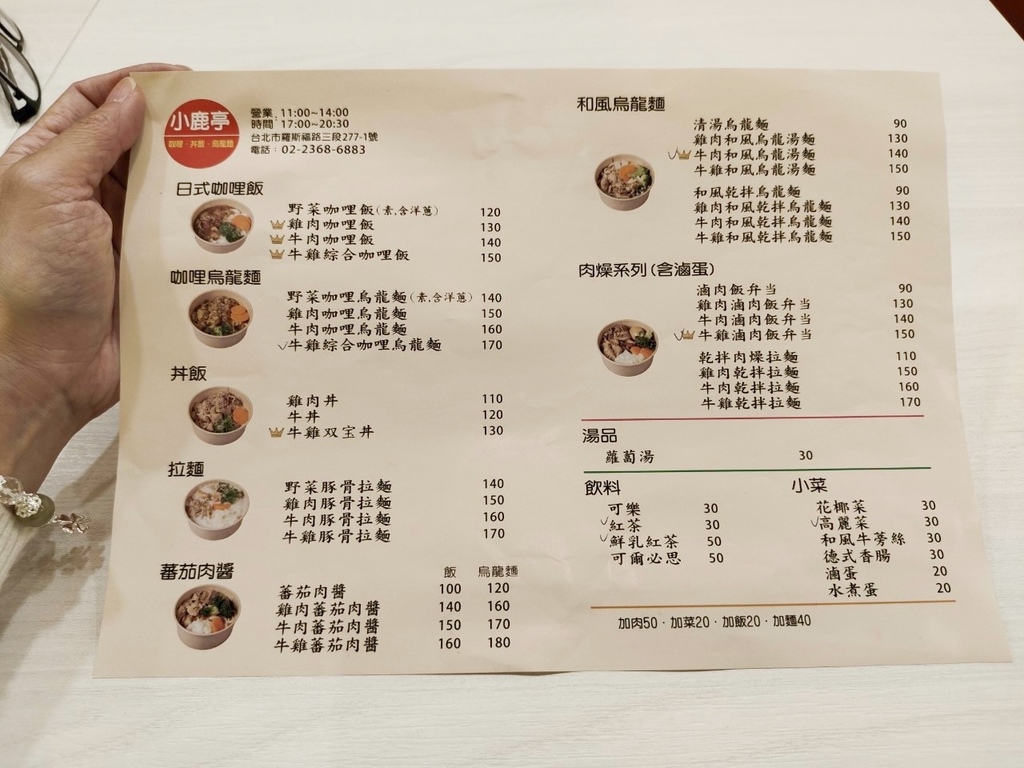 小鹿亭
咖哩·丼飯·烏龍麵
營業時間:11:00~14:00
17:00~20:30
台北市羅斯福路三段277-1號
電話:02-2368-6883
日式咖哩飯
野菜咖哩飯(素.含洋蔥) 120
雞肉咖哩飯 130
牛肉咖哩飯 140
牛雞綜合咖哩飯 150
咖哩烏龍麵
野菜咖哩烏龍麵(素.含洋蔥) 140
雞肉咖哩烏龍麵 150
牛肉咖哩烏龍麵 160
牛雞綜合咖哩烏龍麵 170
丼飯
雞肉丼 110
牛丼 120
牛雞双宝丼 130
拉麵
野菜豚骨拉麵 140
雞肉豚骨拉麵 150
牛肉豚骨拉麵 160
牛雞豚骨拉麵 170
蕃茄肉醬 飯 烏龍麵
蕃茄肉醬 100 120
雞肉蕃茄肉醬 140 160
牛肉蕃茄肉醬 150 170
牛雞蕃茄肉醬 160 180
和風烏龍麵
清湯烏龍麵 90
雞肉和風烏龍湯麵 130
牛肉和風烏龍湯麵 140
牛雞和風烏龍湯麵 150
和風乾拌烏龍麵 90
雞肉和風乾拌烏龍麵 130
牛肉和風乾拌烏龍麵 140
牛雞和風乾拌烏龍麵 150
肉燥系列(含滷蛋)
滷肉飯弁当 90
雞肉滷肉飯弁当 130
牛肉滷肉飯弁当 140
牛雞滷肉飯弁当 150
乾拌肉燥拉麵 110
雞肉乾拌拉麵 150
牛肉乾拌拉麵 160
牛雞乾拌拉麵 170
湯品
蘿蔔湯 30
飲料
可樂 30
紅茶 30
鮮乳紅茶 50
可爾必思 50
小菜
花椰菜 30
高麗菜 30
和風牛蒡絲 30
德式香腸 30
滷蛋 20
水煮蛋 20
加肉50·加菜20·加飯20·加麵40